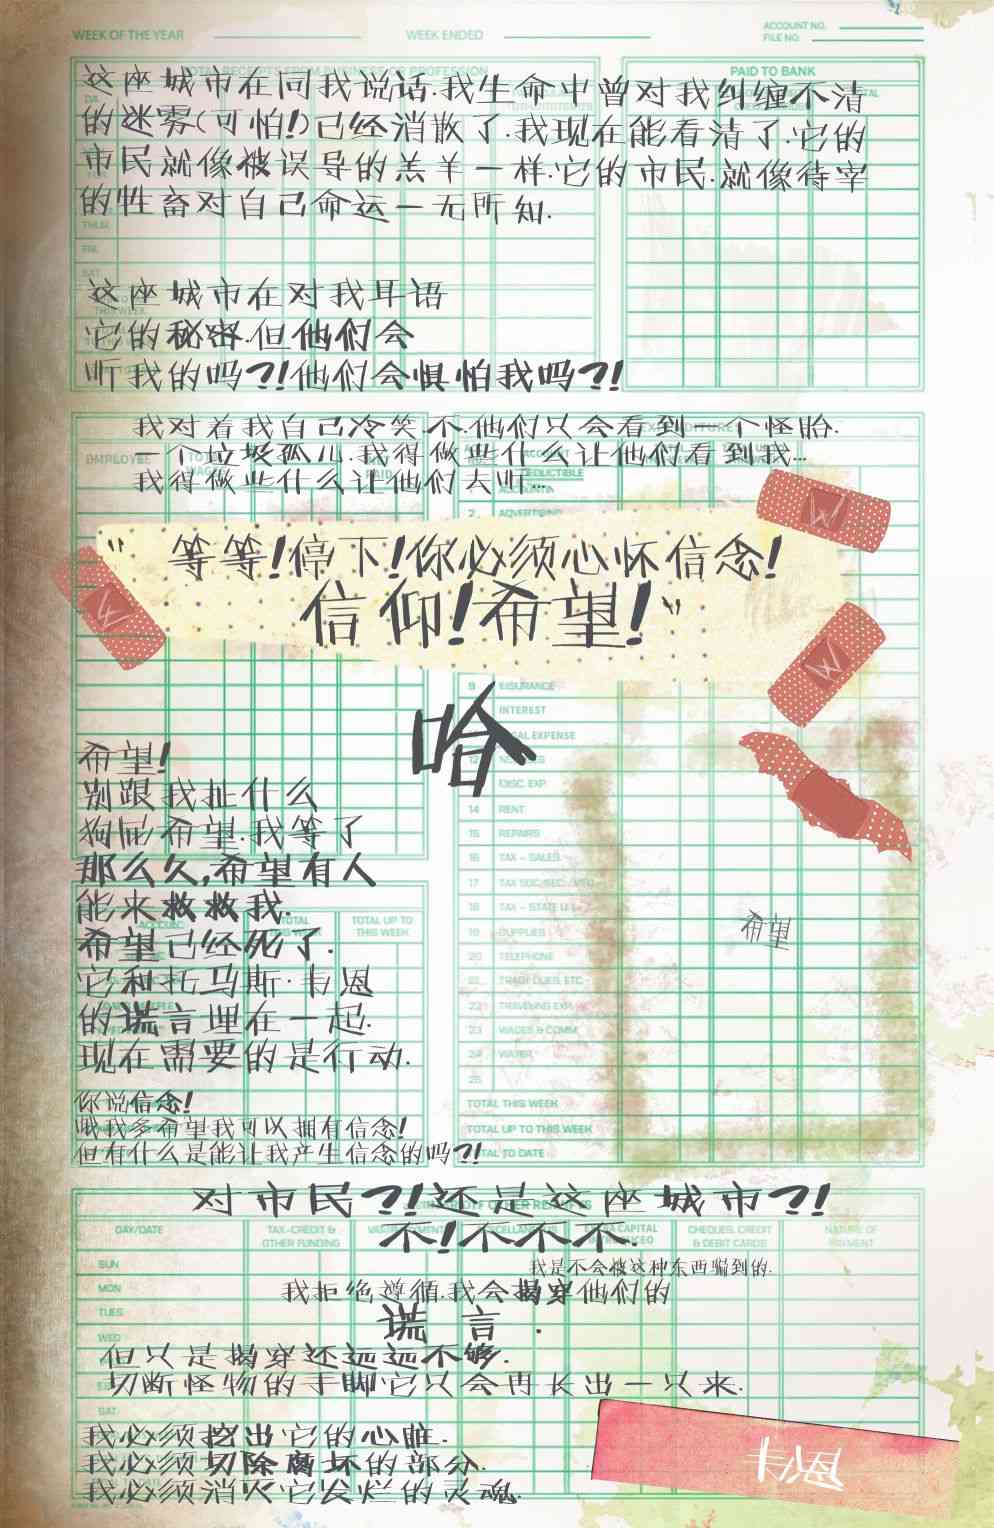 WEEK OF THE YEAR
WEEK ENDED
ACCOUNT NO.
FILE NO.
TOTAL RECEIPTS FROM BUSINESS OR PROFESSION
PAID TO BANK
这座城市在同我说话.我生命中曾对我纠缠不清
的迷雾(可怕!)已经消散了.我现在能看清了.它的
市民就像被误导的羔羊一样.它的市民.就像待宰
的牲畜对自己命运一无所知.
THUR
FRI.
SAT
这座城市在对我耳语
THIS WEEK
它的秘密.但他们会
听我的吗?!他们会惧怕我吗?!
我对着我自己冷笑.不.他们只会看到一个怪胎.
一个垃圾孤儿.我得做些什么让他们看到我...
我得做些什么让他们去听...
EMPLOYEE
PAID
DEDUCTIBLE
2 ADVERTISING
"等等!停下!你必须心怀信念!
信仰!希望!"
W
W
W
9
INTEREST
哈
14 RENT
15 REPAIRS
16 TAX - SALES
17
18
19 SUPPLIES
20 TELEPHONE
22 TRAVELING EXP.
23 WAGES & COMM.
24 WATER
25
TOTAL THIS WEEK
TOTAL UP TO THIS WEEK
TOTAL TO DATE
希望!
别跟我扯什么
狗屁希望.我等了
那么久,希望有人
能来救救我.
希望已经死了.
它和托马斯·韦恩
的谎言埋在一起.
现在需要的是行动.
TOTAL THIS WEEK
TOTAL UP TO THIS WEEK
希望
你说信念!
哦我多希望我可以拥有信念!
但有什么是能让我产生信念的吗?!
对市民?!还是这座城市?!
不!不不不.
DAY/DATE
TAX-CREDIT & OTHER FUNDING
EXTRA CAPITAL INTRODUCED
CHEQUES, CREDIT & DEBIT CARDS
NATURE OF PAYMENT
SUN
MON
TUES
WED
SAT
我是不会被这种东西骗到的.
我拒绝遵循.我会揭穿他们的
谎言.
但只是揭穿还远远不够.
切断怪物的手脚它只会再长出一只来.
我必须挖出它的心脏.
我必须切除腐坏的部分.
我必须消灭它公烂的灵魂.
韦恩